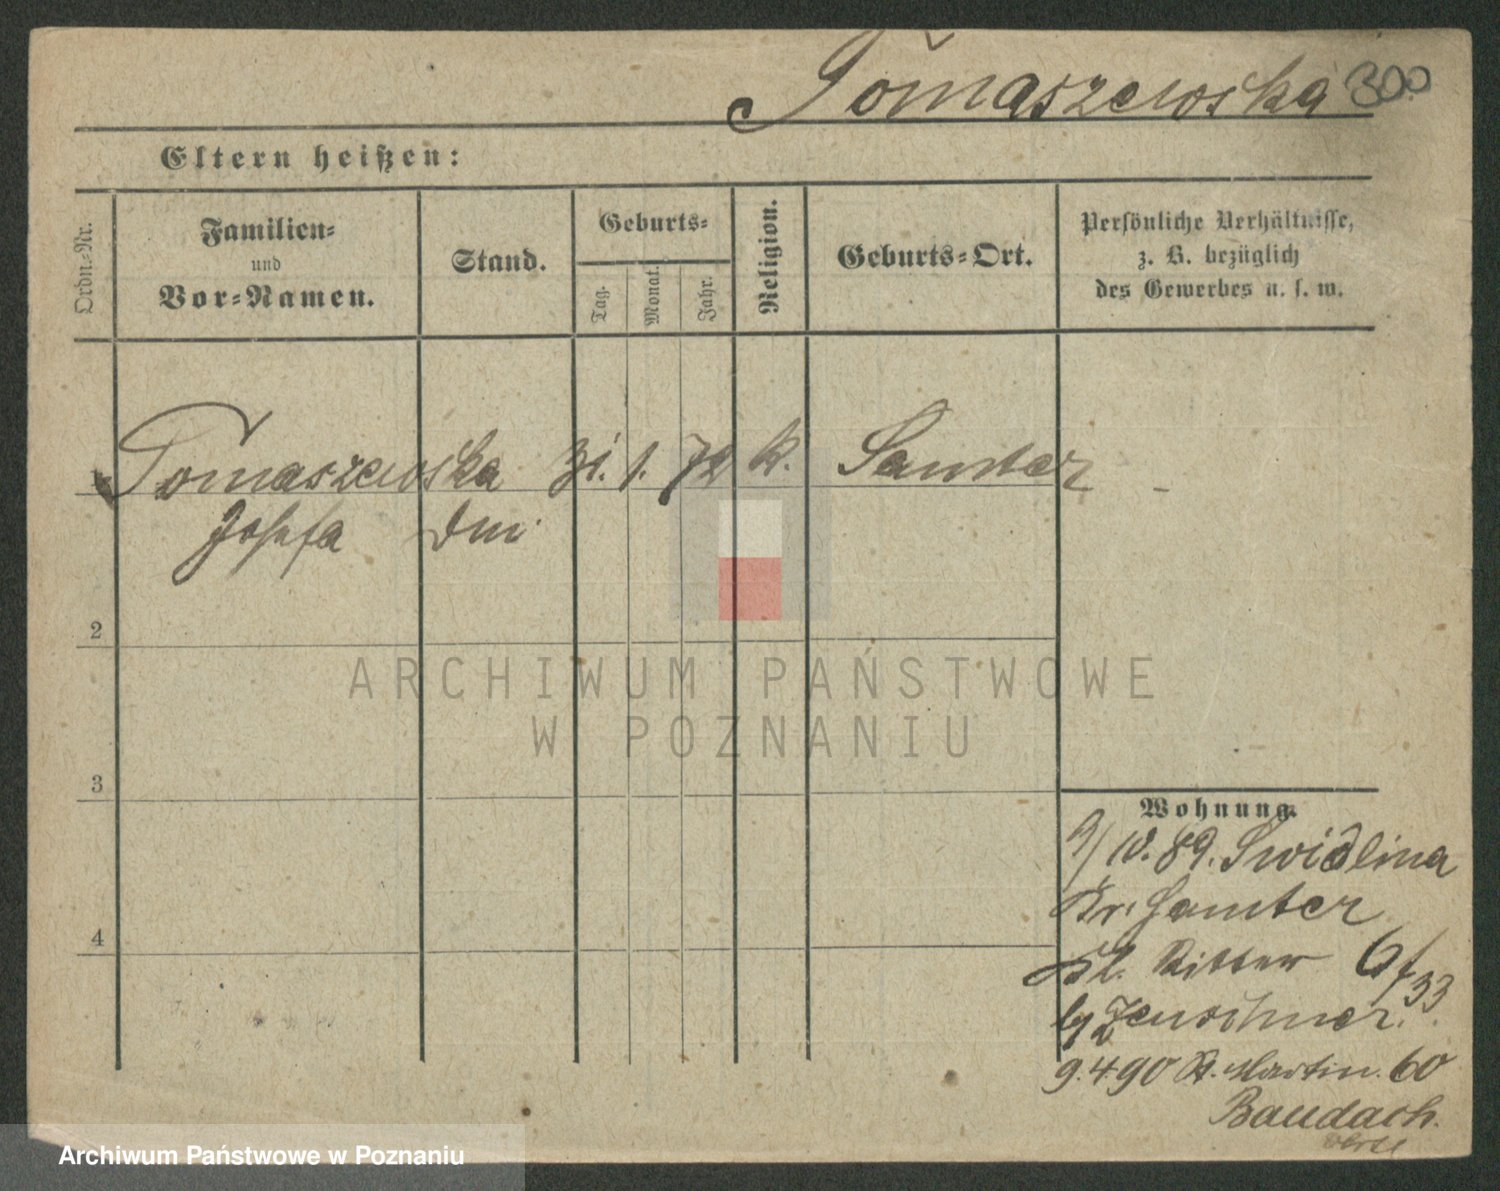 Tomaszewska 300
Eltern heißen:
Ordn.-Nr.
Familien-
und
Vor-Namen.
Stand.
Geburts-
Tag.
Monat.
Jahr.
Religion.
Geburts-Ort.
Persönliche Verhältnisse,
z. B. bezüglich
des Gewerbes u. s. w.
Tomaszewska 31. 1. 72 k. Samter -
Josefa
2
3
4
Wohnung.
9/10. 89. Swidlina
Kr. Samter
Kl. Ritter 6/33.
9.4.90 St. Martin. 60
Baudach.
ARCHIWUM PAŃSTWOWE
W POZNANIU
Archiwum Państwowe w Poznaniu